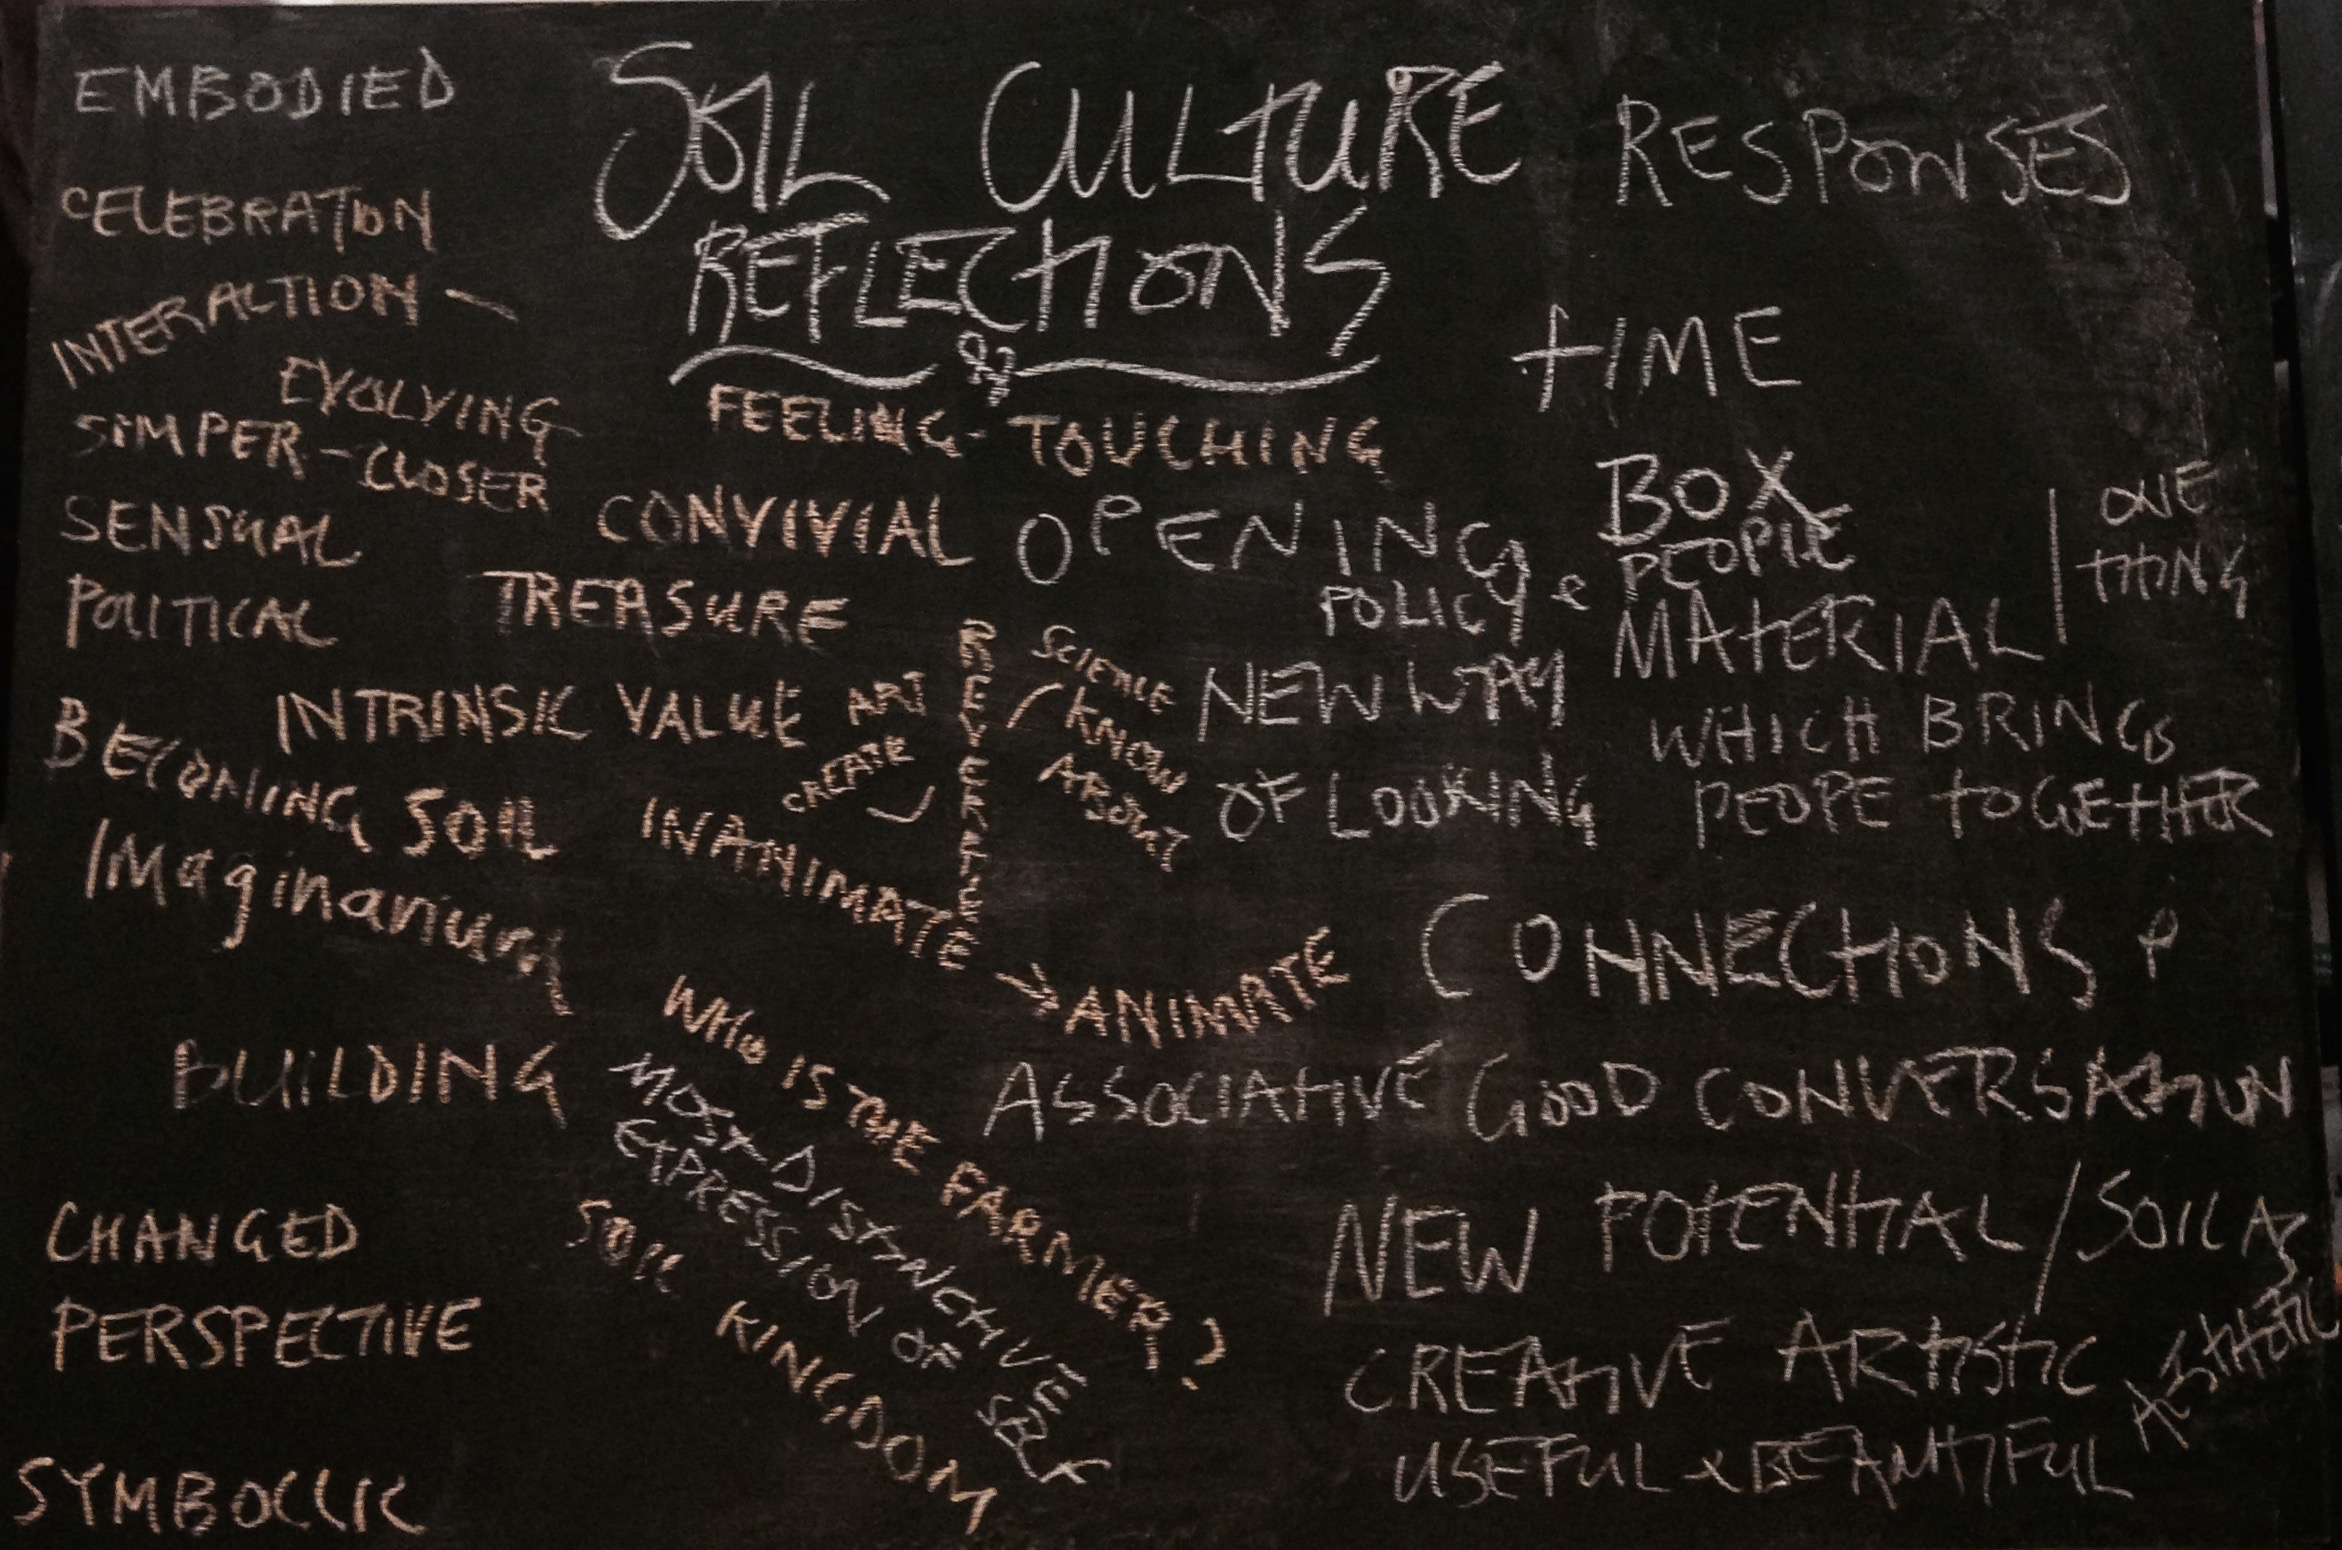 SOIL CULTURE RESPONSES
REFLECTIONS
&
EMBODIED
CELEBRATION
INTERACTION -
EVOLVING
SIMPER-CLOSER
SENSUAL
POLITICAL
FEELING- TOUCHING
CONVIVIAL
TREASURE
INTRINSIC VALUE
BECOMING SOIL
IMaginarium
BUILDING
CHANGED
PERSPECTIVE
SYMBOLLIC
ART
CREATE
REVERENCE
SCIENCE
KNOW
ABOUT
INANIMATE → ANIMATE
WHO IS THE FARMER?
MOST DISTINCTIVE
EXPRESSION OF SELF
SOIL KINGDOM
TIME
OPENING
POLICY &
NEW WAY
OF LOOKING
BOX
PEOPLE
MATERIAL
ONE
THING
WHICH BRINGS
PEOPE TOGETHER
CONNECTIONS &
ASSOCIATIVE GOOD CONVERSATION
NEW POTENTIAL / SOIL AS
CREATIVE ARTISTIC
AESTHETIC
USEFUL & BEAUTIFUL